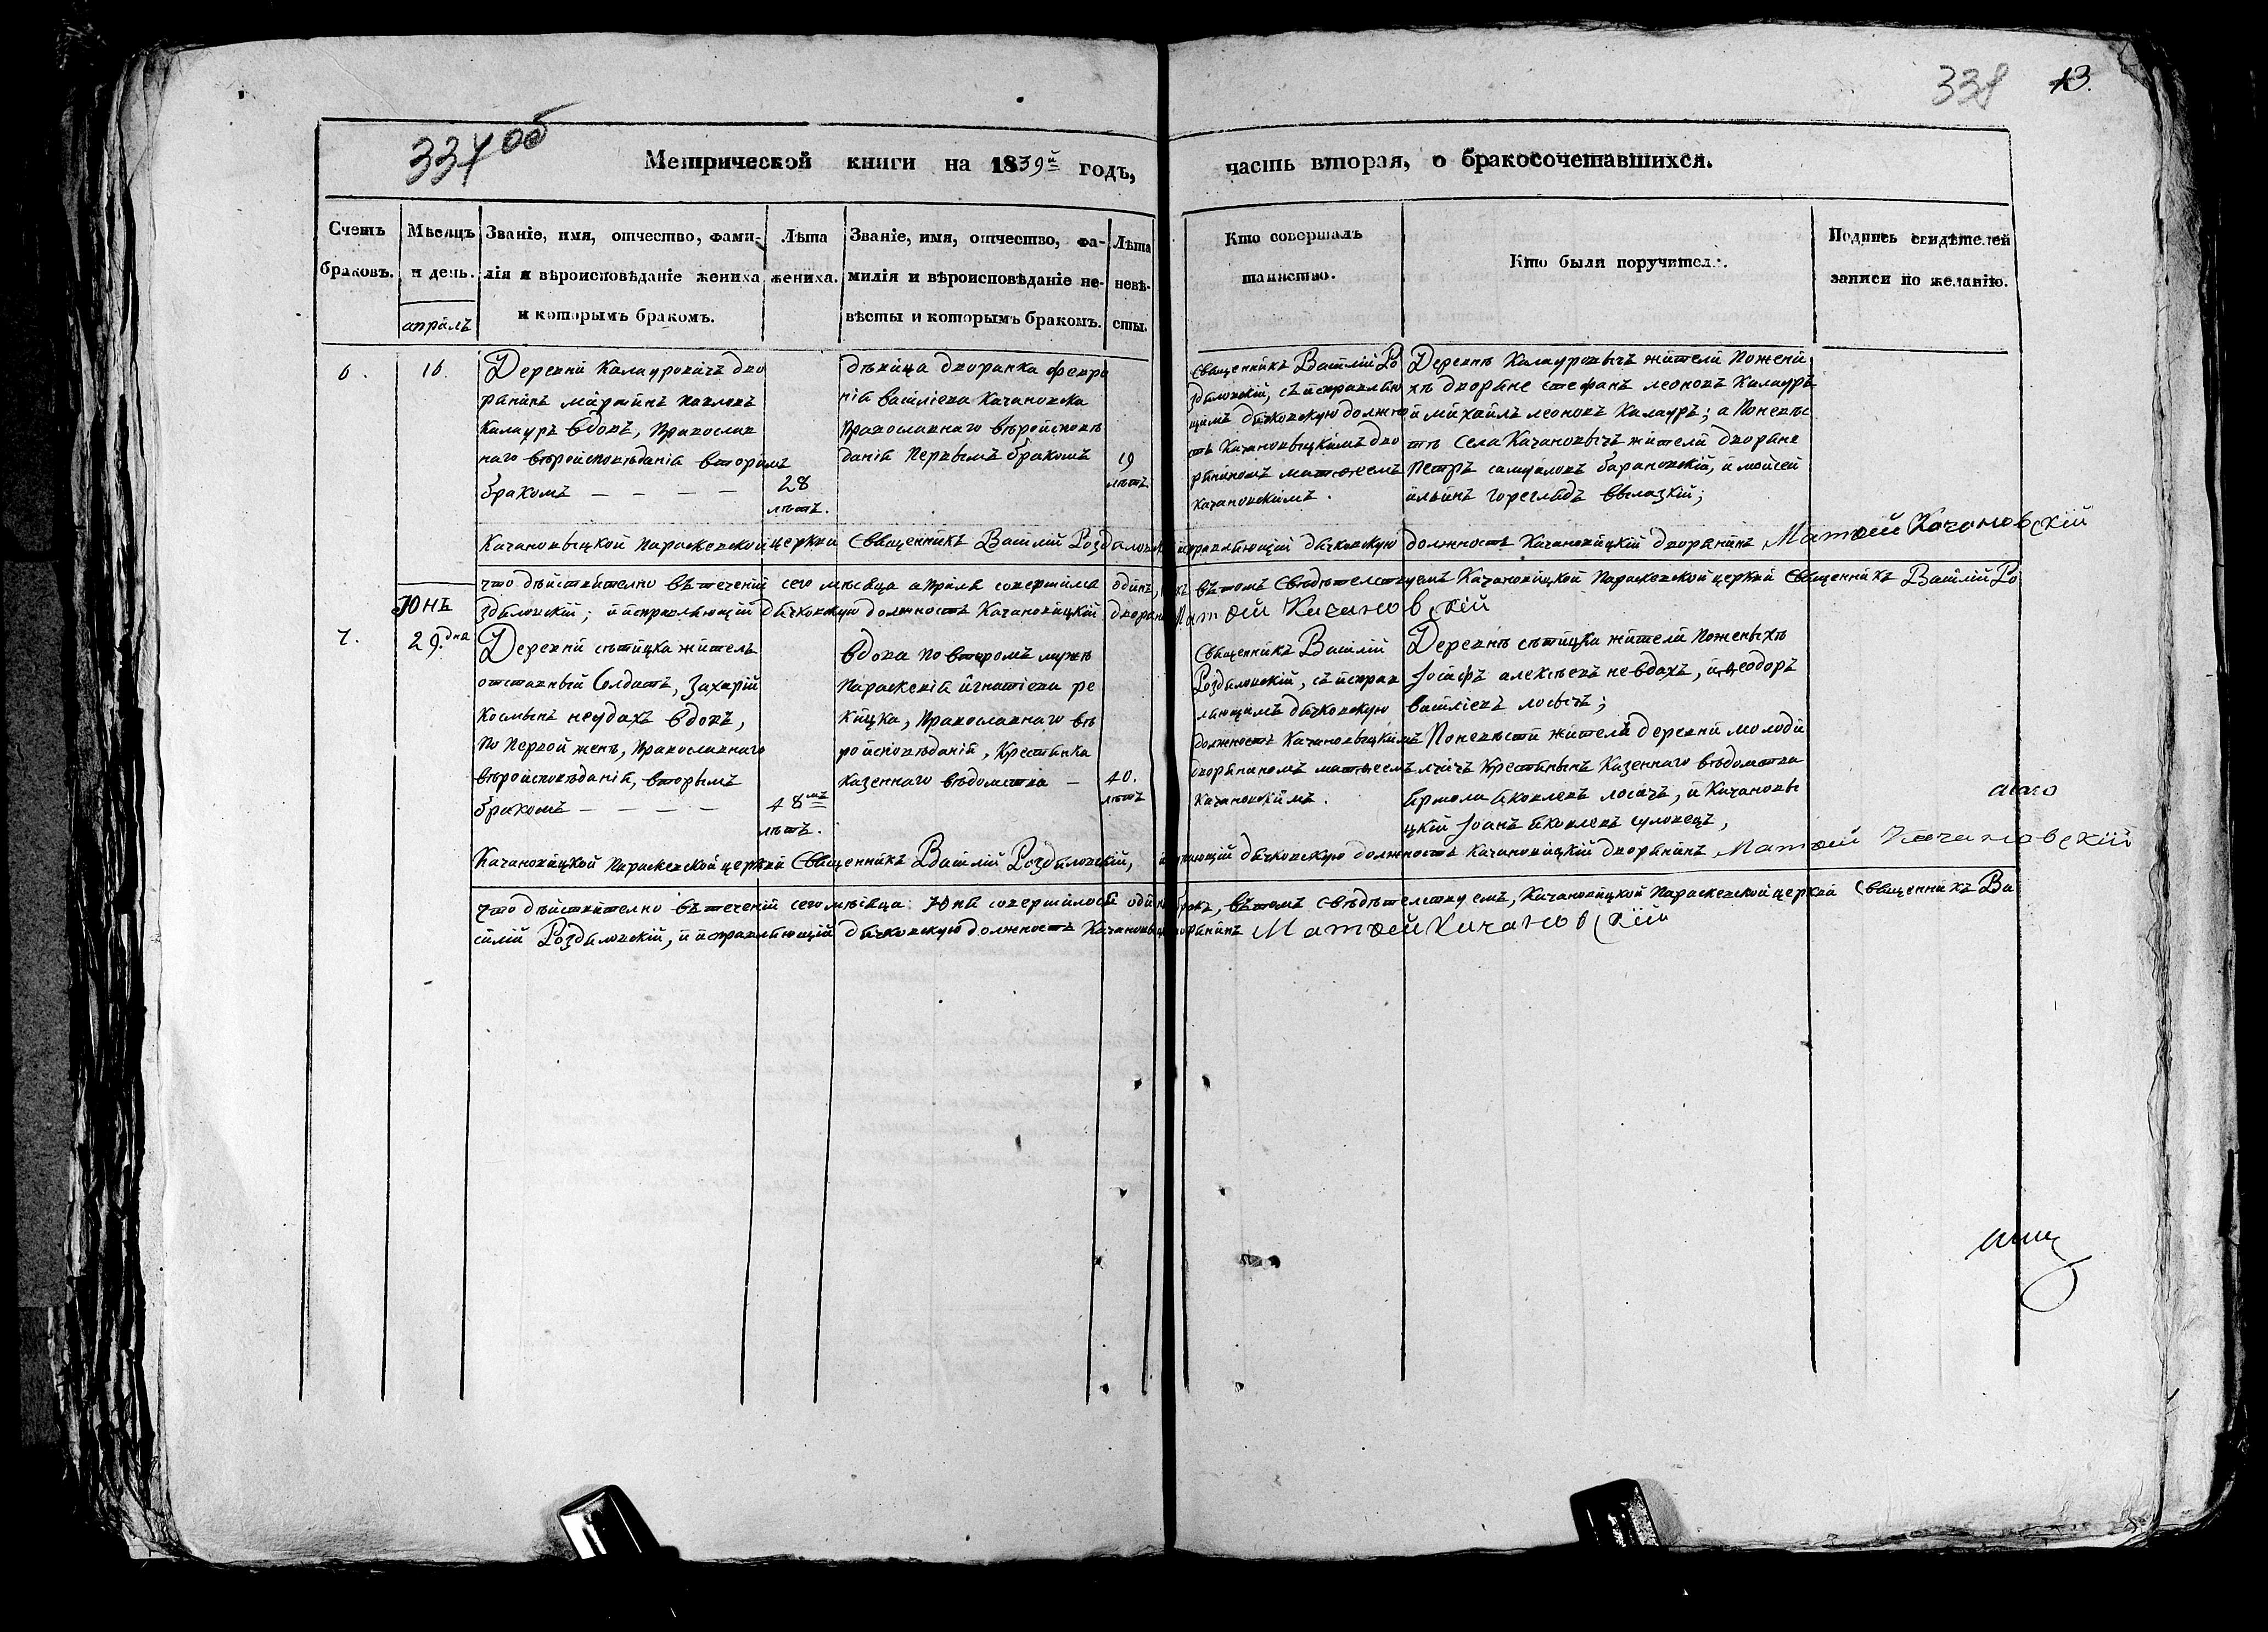 13.
334об
Метрической книги на 1839й годъ, часть вторая, о бракосочетавшихся.
Счетъ браковъ.
Мѣсяцъ и день.
Званіе, имя, отчество, фами-
лія и вѣроисповѣданіе жениха
и которымъ бракомъ.
Лѣта
жениха.
Званіе, имя, отчество, фа-
милія и вѣроисповѣданіе не-
вѣсты и которымъ бракомъ.
Лѣта
невѣ-
сты.
Кто совершалъ
таинство.
Кто были поручители.
Подпись свидѣтелей
записи по желанію.
апрѣль
6.
16.
Деревни Калауровичъ дво
ранинъ Мартинъ Павловъ
Калауръ вдовъ, православ
наго вѣроисповѣданія вторымъ
бракомъ — — — —
28
лѣтъ.
дѣвица дворанка Февро
нія Василіева Качановска
православнаго вѣроисповѣ
данія первымъ бракомъ
19
лѣтъ
Священникъ Василій Ро
здяловскій, съ исправляю
щимъ дьячковскую должно
сть Качановицкимъ дво
ряниномъ Матѳеемъ
Качановскимъ.
Деревнѣ Калауровичъ жители по жени
хѣ дворяне Стефанъ Леоновъ Калауръ
и Михайлъ Леоновъ Калауръ; а по невѣс
тѣ села Качановичъ жители дворяне
Петръ Самуиловъ Барановскій, и Мойсей
Ильинъ Гореглядъ Вылазкій;
Качановицкой Параскевской церкви Священникъ Василій Роздяловскій исправляющій дьячковскую должность Качановицкій дворянинъ Матѳей Качановскій
что дѣйствително въ теченіи сего мѣсяца апрѣля совершился одинъ въ томъ свѣдѣтелствуемъ Качановицкой Парасковской церкви Священникъ Василій Ро
здяловскій; и исправляющій дьячковскую должность Качановицкій дворян Матѳей Качановскій
Юнь
7.
29. дня
Деревни Сѣтицка житель
отставный солдатъ, Захарій
Космынъ Неудахъ вдовъ,
по первой женѣ, православнаго
вѣроисповѣданія, вторымъ
бракомъ — — — —
48мъ
лѣтъ.
вдова по второмъ мужѣ
Параскевія Игнатіева Ре
кицка, православнаго вѣ
роисповѣданія, крестьянка
казеннаго вѣдомства —
40.
лѣтъ
Священникъ Василій
Роздяловскій, съ исправ
ляющимъ дьячковскую
должность Качановицкимъ
дворяниномъ Матѳеемъ
Качановскимъ.
Деревнѣ Сѣтицка жители по женыхѣ
Іосифъ Алексѣевъ Невдахъ, и Ѳеодоръ
Василіевъ Лосичъ;
По невѣсти жители деревни Молоди
лчичъ крестьянынъ казеннаго вѣдомства
Ярмола Яковлевъ Лосичъ, и Качановы
цкій Іоанъ Яковлевъ Суловецъ,
Качановицкой Параскевской церкви Священникъ Василій Роздяловскій, дьячковскую должность Качановицкій дворянинъ Матѳей Качановскій
что дѣйствително въ теченіи сего мѣсяца Юня совершилося одинъ бракъ, въ томъ свѣдѣтелствуемъ, Качановицкой Параскевской церкви Священникъ Ва
силій Роздяловскій, и исправляющій дьячковскую должность Качановицкій дворянинъ Матѳей Качановскій